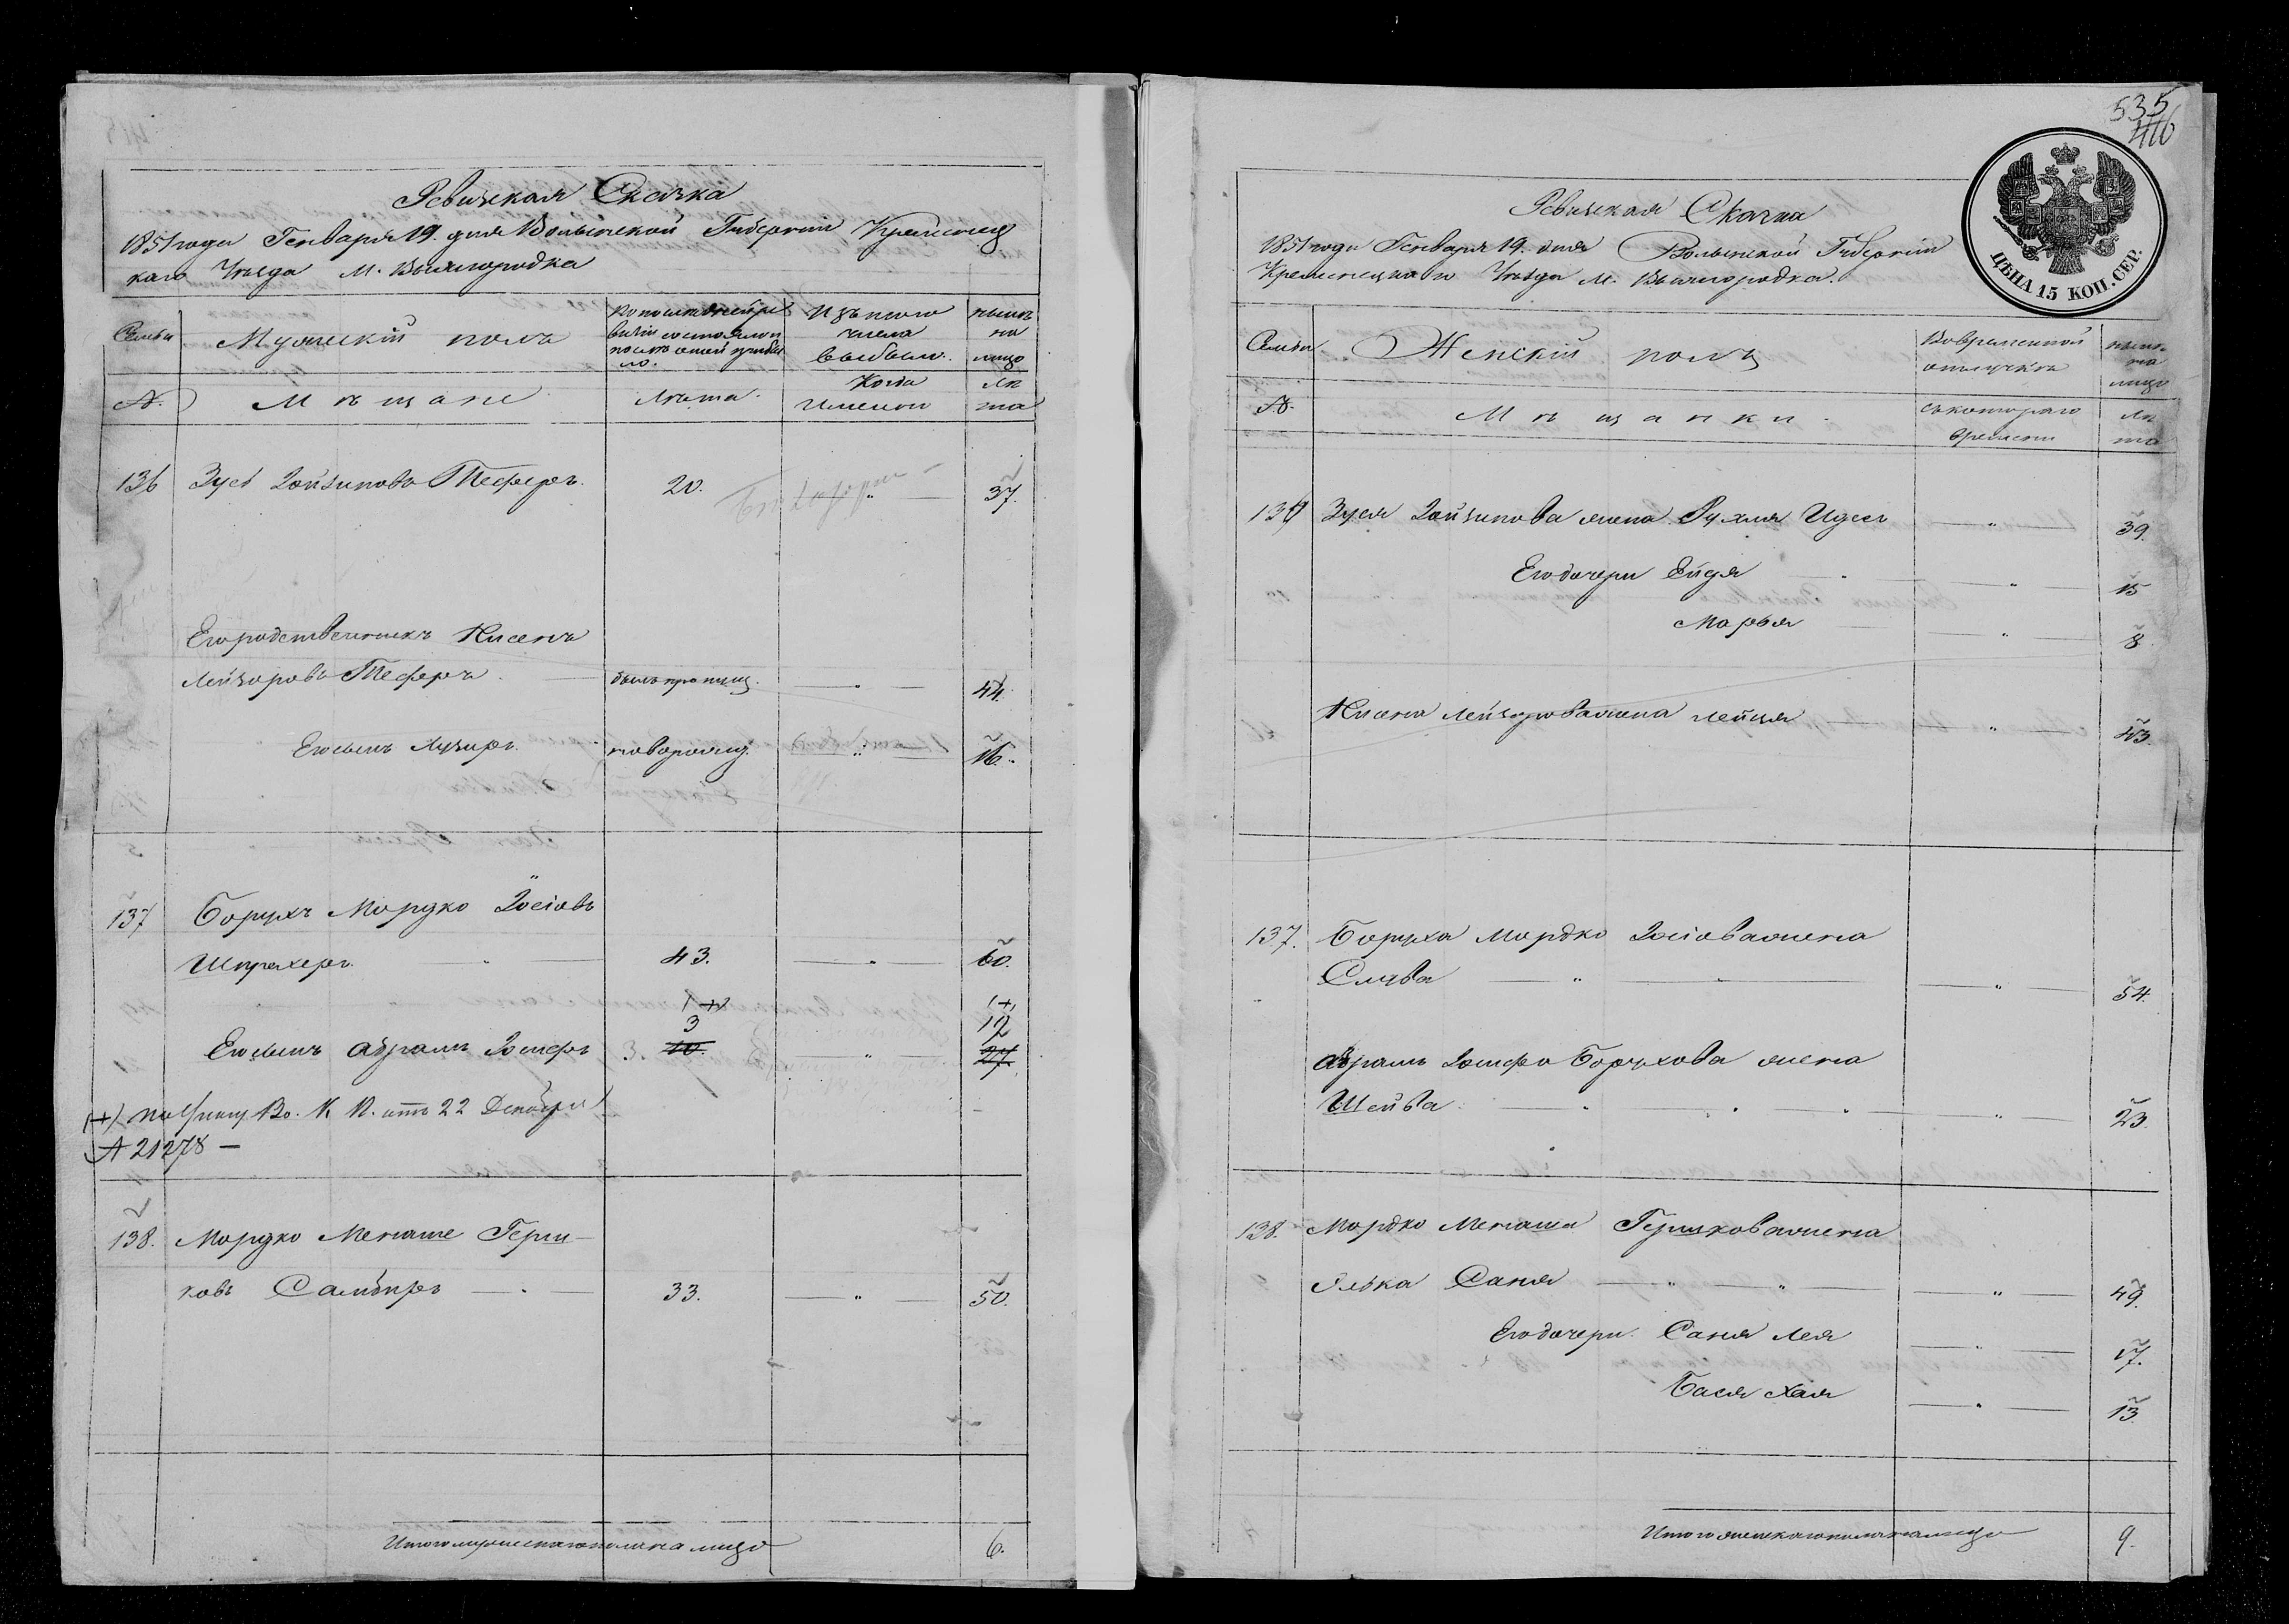 Ревизская Сказка
1851 года Генваря 19. дня Волынской Губернии Кременец
каго Уѣзда М. Вышгородка
Семьи
Мужескій полъ
По последней ре
визіи состояло и
послѣ оной прибы
ло.
Изъ того
числа
выбыло.
нынѣ
на
лицо
№.
Мѣщане
Лѣта.
Когда
именно
Лѣ
та
136 Зусь Іойзиповъ Теферъ. 20. " 37.
Его родственникъ Нисенъ
Лейзоровъ Теферъ былъ пропущ. " 44.
Его сынъ Лузиръ. новорожд. " 16.
137 Борухъ Мордко Іосіовъ
Шпрахеръ. 43. " 60.
1 +
3
(+)
12
Его сынъ Абрамъ Іосифъ 10. " 27.
(+) по Указу Во. К. П. отъ 22 Декабря
№ 21278 —
138. Мордко Менаше Герш-
ковъ Самбиръ 33. " 50.
Итого мужескаго пола на лицо 6.
535
416
ЦѢНА 15 КОП. СЕР.
Ревизская Сказка
1851 года Генваря 19. дня Волынской Губерніи
Кременецкаго Уѣзда М. Вышгородка.
Семьи.
Женскій полъ
Во временной
отлучкѣ
нынѣ
на
лицо
№.
Мѣщанки.
съ котораго
времени
Лѣ
та
136 Зуся Іойзипова жена Рухля Идесъ " 39.
Его дочери Ейдя " 15
Марья " 8.
Нисена Лейзорова жена Лейця " 43.
137. Боруха Мордко Іосіова жена
Слува " 54.
Абрамъ Іосифа Борухова жена
Шейва " 23.
138. Мордко Менаша Гершкова жена
Ривка Сання " 49.
Его дочери. Сання Лея " 17.
Бася Хая " 13
Итого женскаго пола на лицо 9.